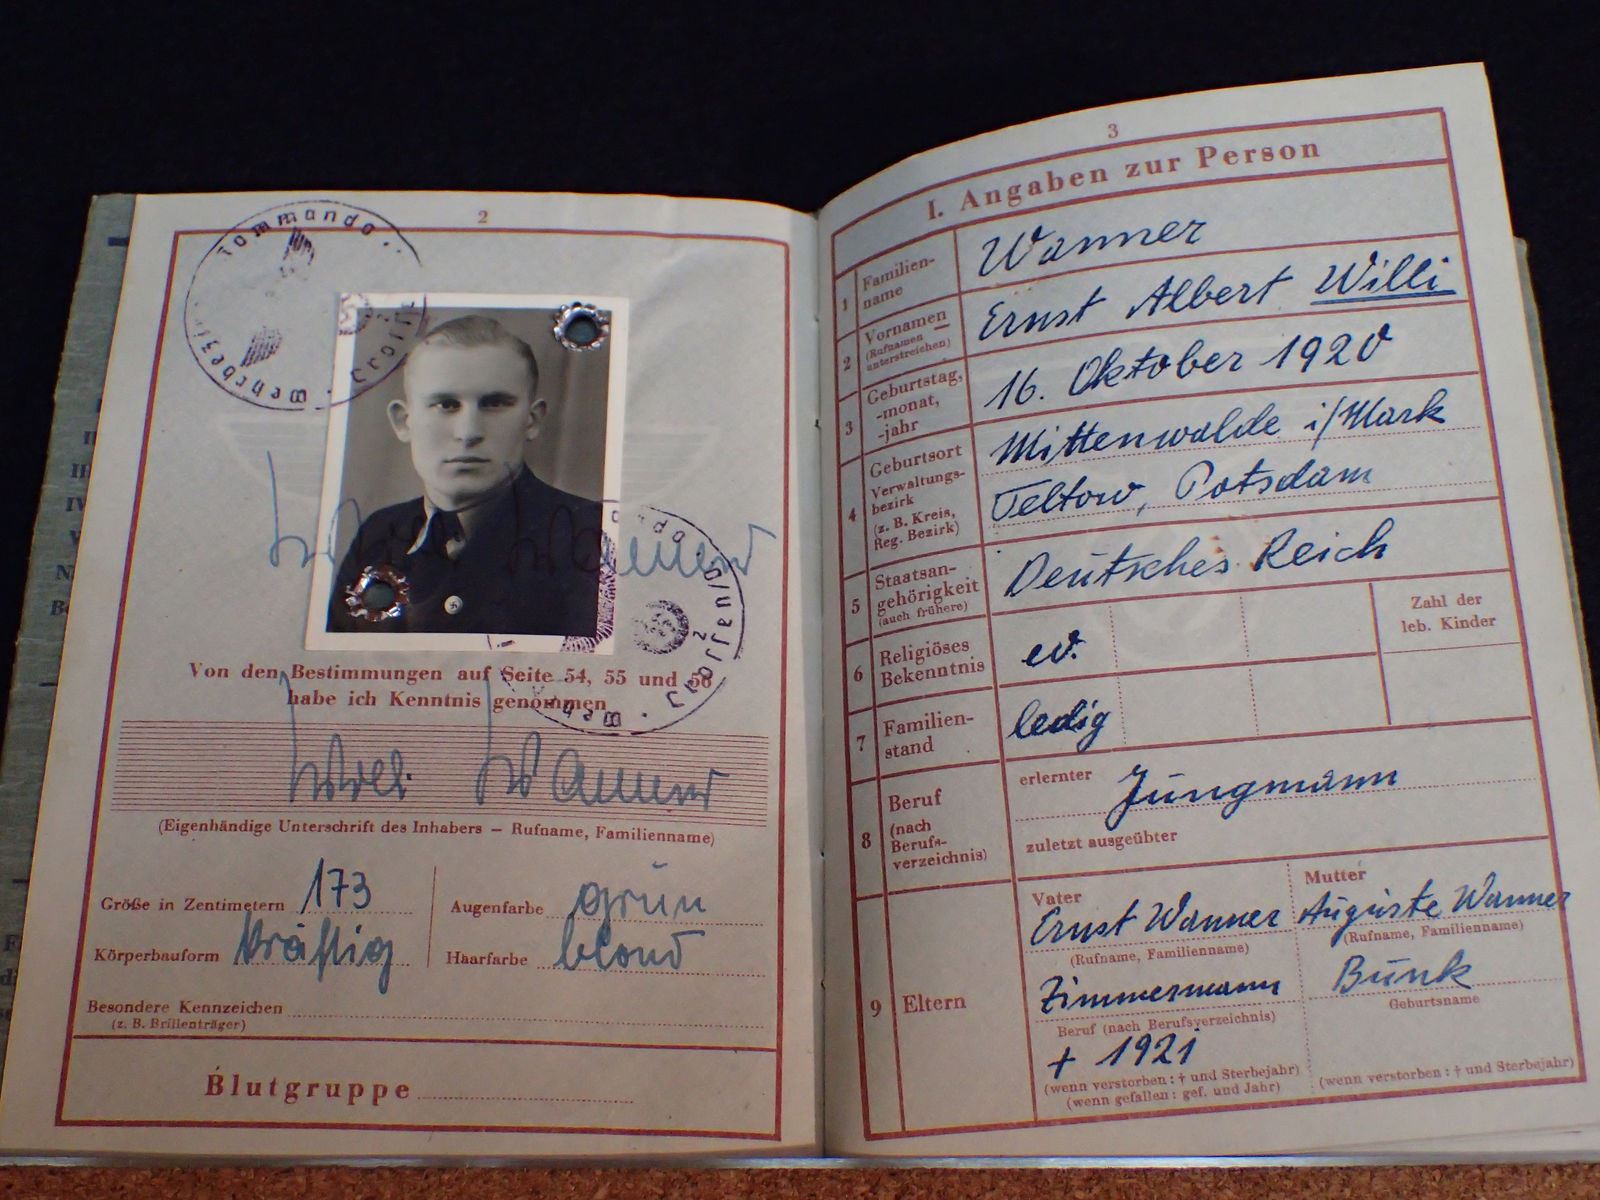 2
Kommando
Von den Bestimmungen auf Seite 54, 55 und 56
habe ich Kenntnis genommen
Willi Wanner
(Eigenhändige Unterschrift des Inhabers – Rufname, Familienname)
Größe in Zentimetern 173
Augenfarbe grün
Körperbauform kräftig
Haarfarbe blond
Besondere Kennzeichen
(z. B. Brillenträger)
Blutgruppe
3
I. Angaben zur Person
1 Familien-
name
Wanner
2 Vornamen
(Rufnamen
unterstreichen)
Ernst Albert Willi
3 Geburtstag,
-monat,
-jahr
16. Oktober 1920
4 Geburtsort
Verwaltungs-
bezirk
(z. B. Kreis,
Reg. Bezirk)
Mittenwalde i/Mark
Teltow, Potsdam
5 Staatsan-
gehörigkeit
(auch frühere)
Deutsches Reich
6 Religiöses
Bekenntnis
ev.
Zahl der
leb. Kinder
7 Familien-
stand
ledig
8 Beruf
(nach
Berufs-
verzeichnis)
erlernter Jungmann
zuletzt ausgeübter
9 Eltern
Vater
Ernst Wanner
(Rufname, Familienname)
Zimmermann
Beruf (nach Berufsverzeichnis)
+ 1921
(wenn verstorben: † und Sterbejahr)
(wenn gefallen: gef. und Jahr)
Mutter
Auguste Wanner
(Rufname, Familienname)
Bunk
Geburtsname
(wenn verstorben: † und Sterbejahr)